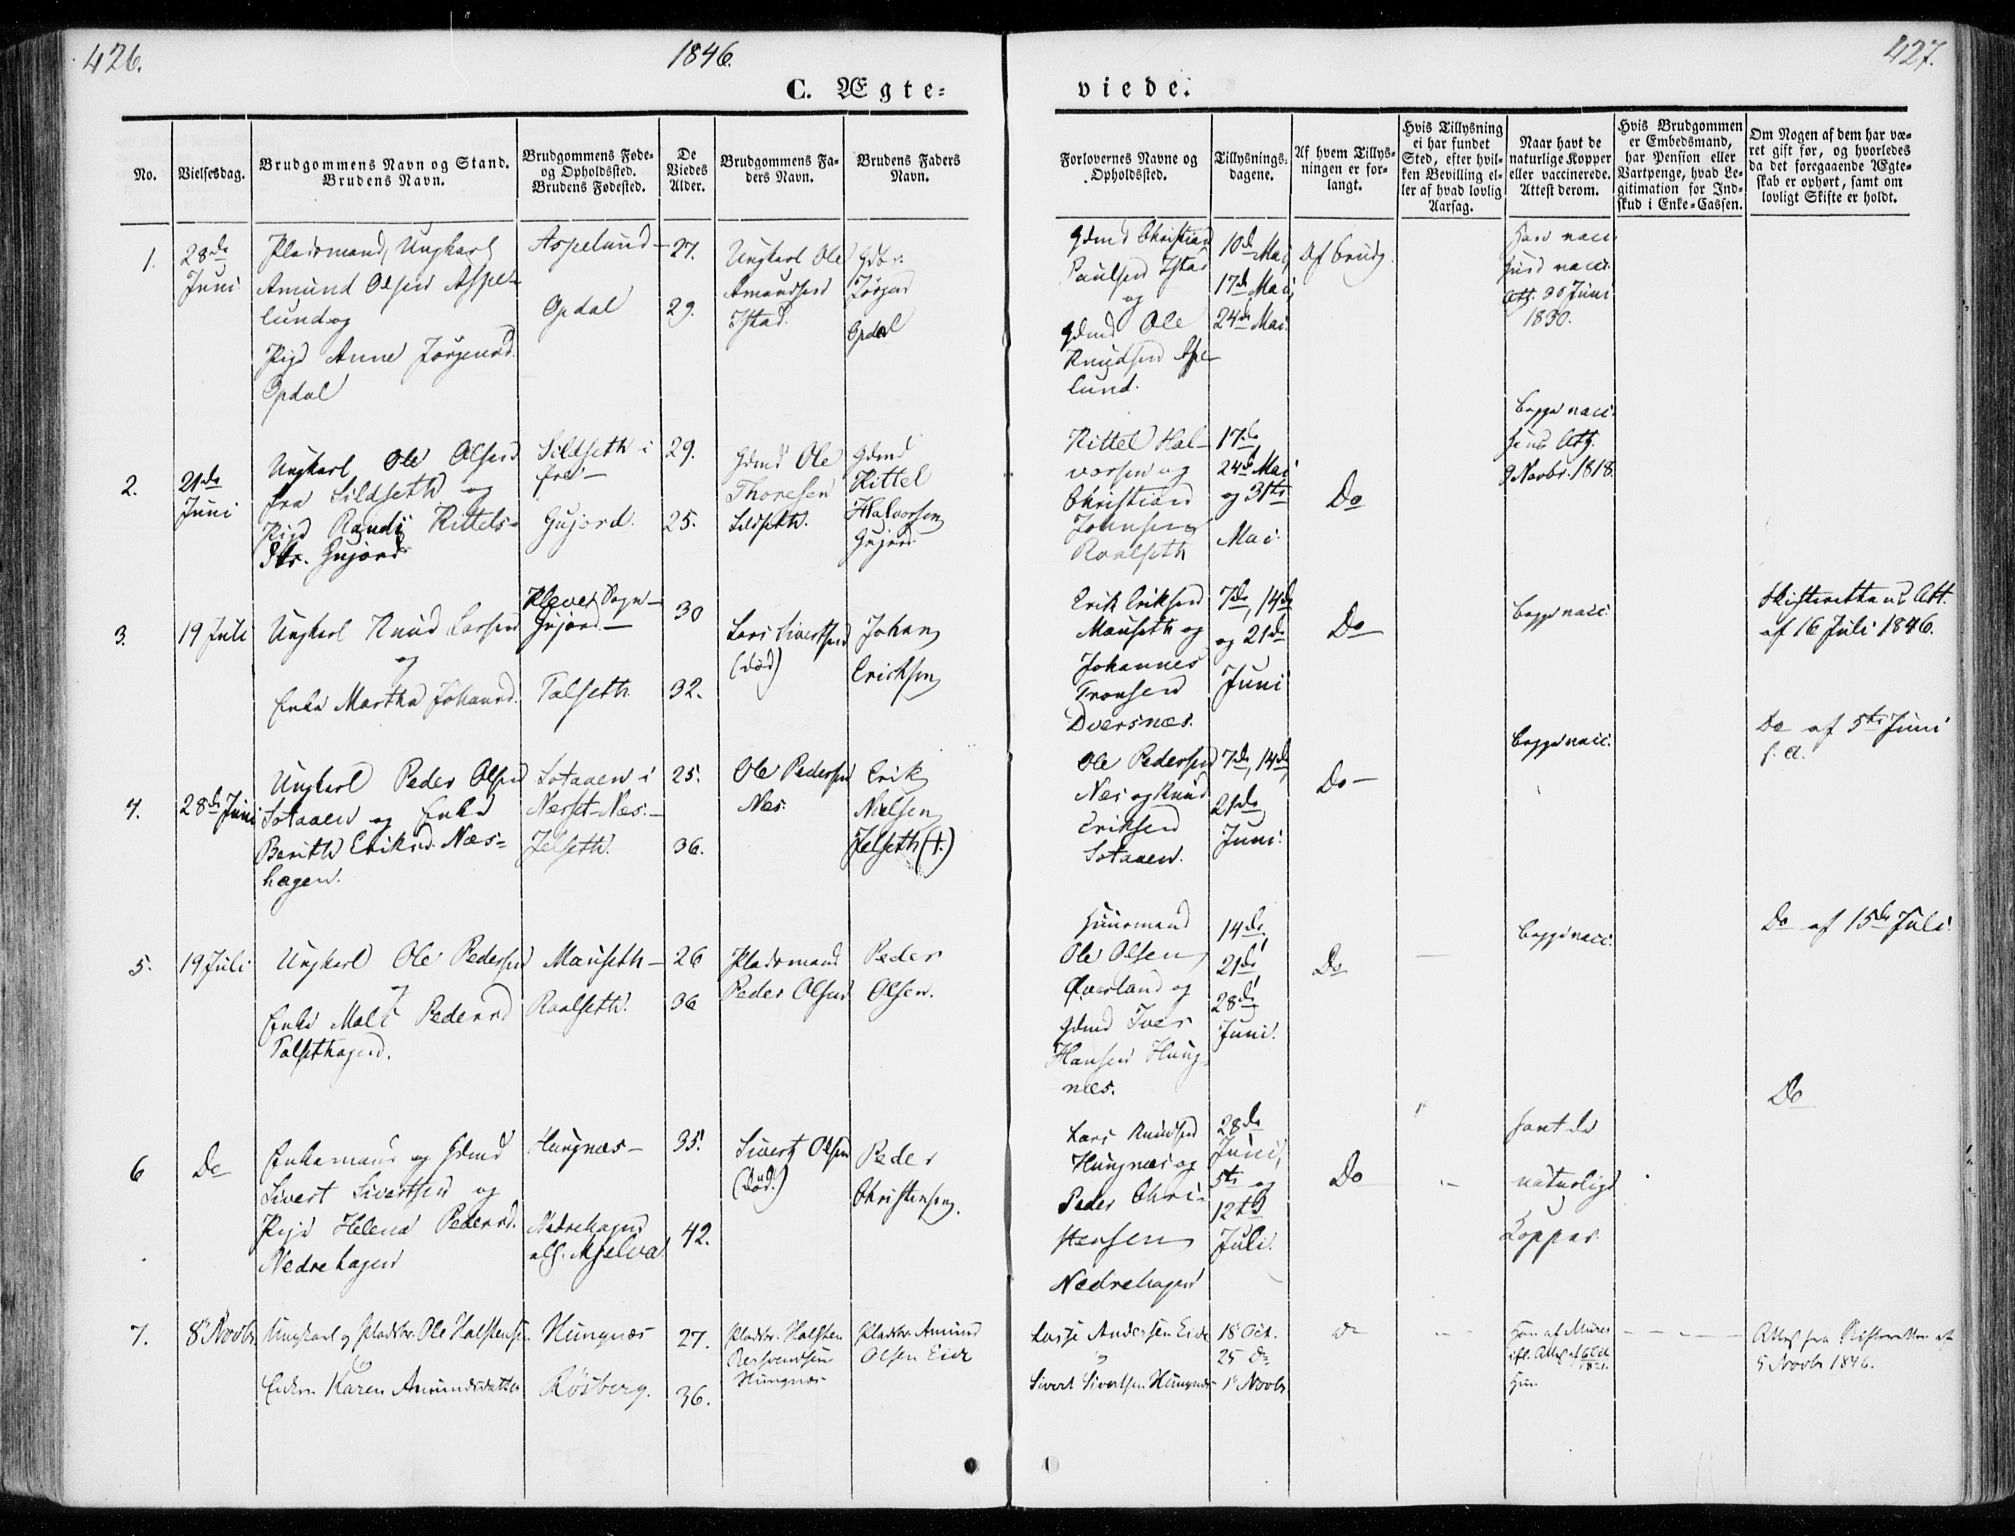 426.
1846.
427.
C. Ægte-
viede.
No.
Vielsesdag.
Brudgommens Navn og Stand.
Brudens Navn.
Brudgommens Føde-
og Opholdssted.
Brudens Fødested.
De
Viedes
Alder.
Brudgommens Fa-
ders Navn.
Brudens Faders
Navn.
Forlovernes Navne og
Opholdssted.
Tillysnings-
dagene.
Af hvem Tillys-
ningen er for-
langt.
Hvis Tillysning
ei har fundet
Sted, efter hvil-
ken Bevilling el-
ler af hvad lovlig
Aarsag.
Naar havt de
naturlige Kopper
eller vaccinerede.
Attest derom.
Hvis Brudgommen
er Embedsmand,
har Pension eller
Vartpenge, hvad Le-
gitimation for Ind-
skud i Enke-Cassen.
Om Nogen af dem har væ-
ret gift før, og hvorledes
da det foregaaende Ægte-
skab er ophørt, samt om
lovligt Skifte er holdt.
1.
28de
Juni
Pladsmand, Ungkarl
Amund Olsen Aspe-
lund og
Pige Anne Jørgensd.
Opdal
Aspelund
Opdal
27.
29.
Ungkarl Ole
Amundsen
Istad.
Gdbr.
Jørgen
Opdal
Gdmd Christian
Paulsen Istad
og
Gdmd Ole
Knudsen Aspe-
lund.
10de Mai,
17de Mai,
24de Mai.
Af Brudg.
Han vacc.
Hun vacc.
Att. 30 Juni
1830.
2.
21de
Juni
Ungkarl Ole Olsen
fra Sildseth og
Pige Randi Kittels-
dtr. Gujord
Sildseth i
Gujord.
29.
25.
Gdmd Ole
Thoresen
Sildseth.
Gdmd
Kittel
Halvorsen
Gujord
Kittel Hal-
vorsen og
Christian
Johnsen
Roalseth
17de,
24de Mai
og 31te
Mai.
Do
Begge vacc.
Hans Att.
9 Novbr. 1818.
3.
19 Juli
Ungkarl Knud Larsen
og
Enke Martha Johansd.
Kleves Sogn
Gujord
Talseth
30
32.
Lars Sivertsen
(død)
Johan
Ericksen
Erik Eriksen
Mauseth og
Johannes
Tronsen
Dversnæs.
7de, 14de
og 21de
Juni
Do
Begge vacc.
Skifterettens Att.
af 16 Juli 1846.
4.
28de Juni
Ungkarl Peder Olsen
Sotaaen og Enke
Berith Eriksd. Næs-
hagen.
Sotaaen i
Nerset-Næs.
Jelseth.
25.
36.
Ole Pedersen
Næs
Erik
Nielsen
Jelseth (†)
Ole Pedersen
Næs og Knud
Eriksen
Sotaaen.
7de, 14de,
21de
Juni.
Do
Begge vacc.
Do af 5te Juni
s. A.
5.
19 Juli
Ungkarl Ole Pedersen
og
Enke Malt Pedersd
Talsethagen.
Mauseth
Roalseth.
26
36
Pladsmand
Peder Olsen
Peder
Olsen.
Huusmand
Ole Olsen
Øverland og
Gdmd Iver
Hansen Hung-
næs.
14de
21de
28de
Juni.
Do
Begge vacc.
Do af 15de Juli.
6
Do
Enkemand og Gdmd
Sivert Sivertsen og
Pige Helena Pedersd.
Nedrehagen
Hungnæs
Nedrehagen
alf. Mjelva
35.
42.
Sivert Olsen
(død.)
Peder
Christensen.
Lars Knudsen
Hungnæs og
Peder Chri-
stensen
Nedrehagen
28de
Juni,
5te og
12te
Juli.
Do
havt de
naturlige
Kopper.
Do
7.
8de Novbr.
Ungkarl og Pladsbr. Ole Halstensen
og
Enken Karen Amundsdatter
Hungnæs
Røsberg.
27.
36.
Pladsbr. Halsten
Hungnæs
Pladsbr. Amund
Olsen Eide
Lasse Andersen Eide
og
Sivert Sivertsen Hungnæs
18 Oct.
25 Do
1te Novbr.
do
Hun
Attest fra Skifteretten af
5 Novbr 1846.